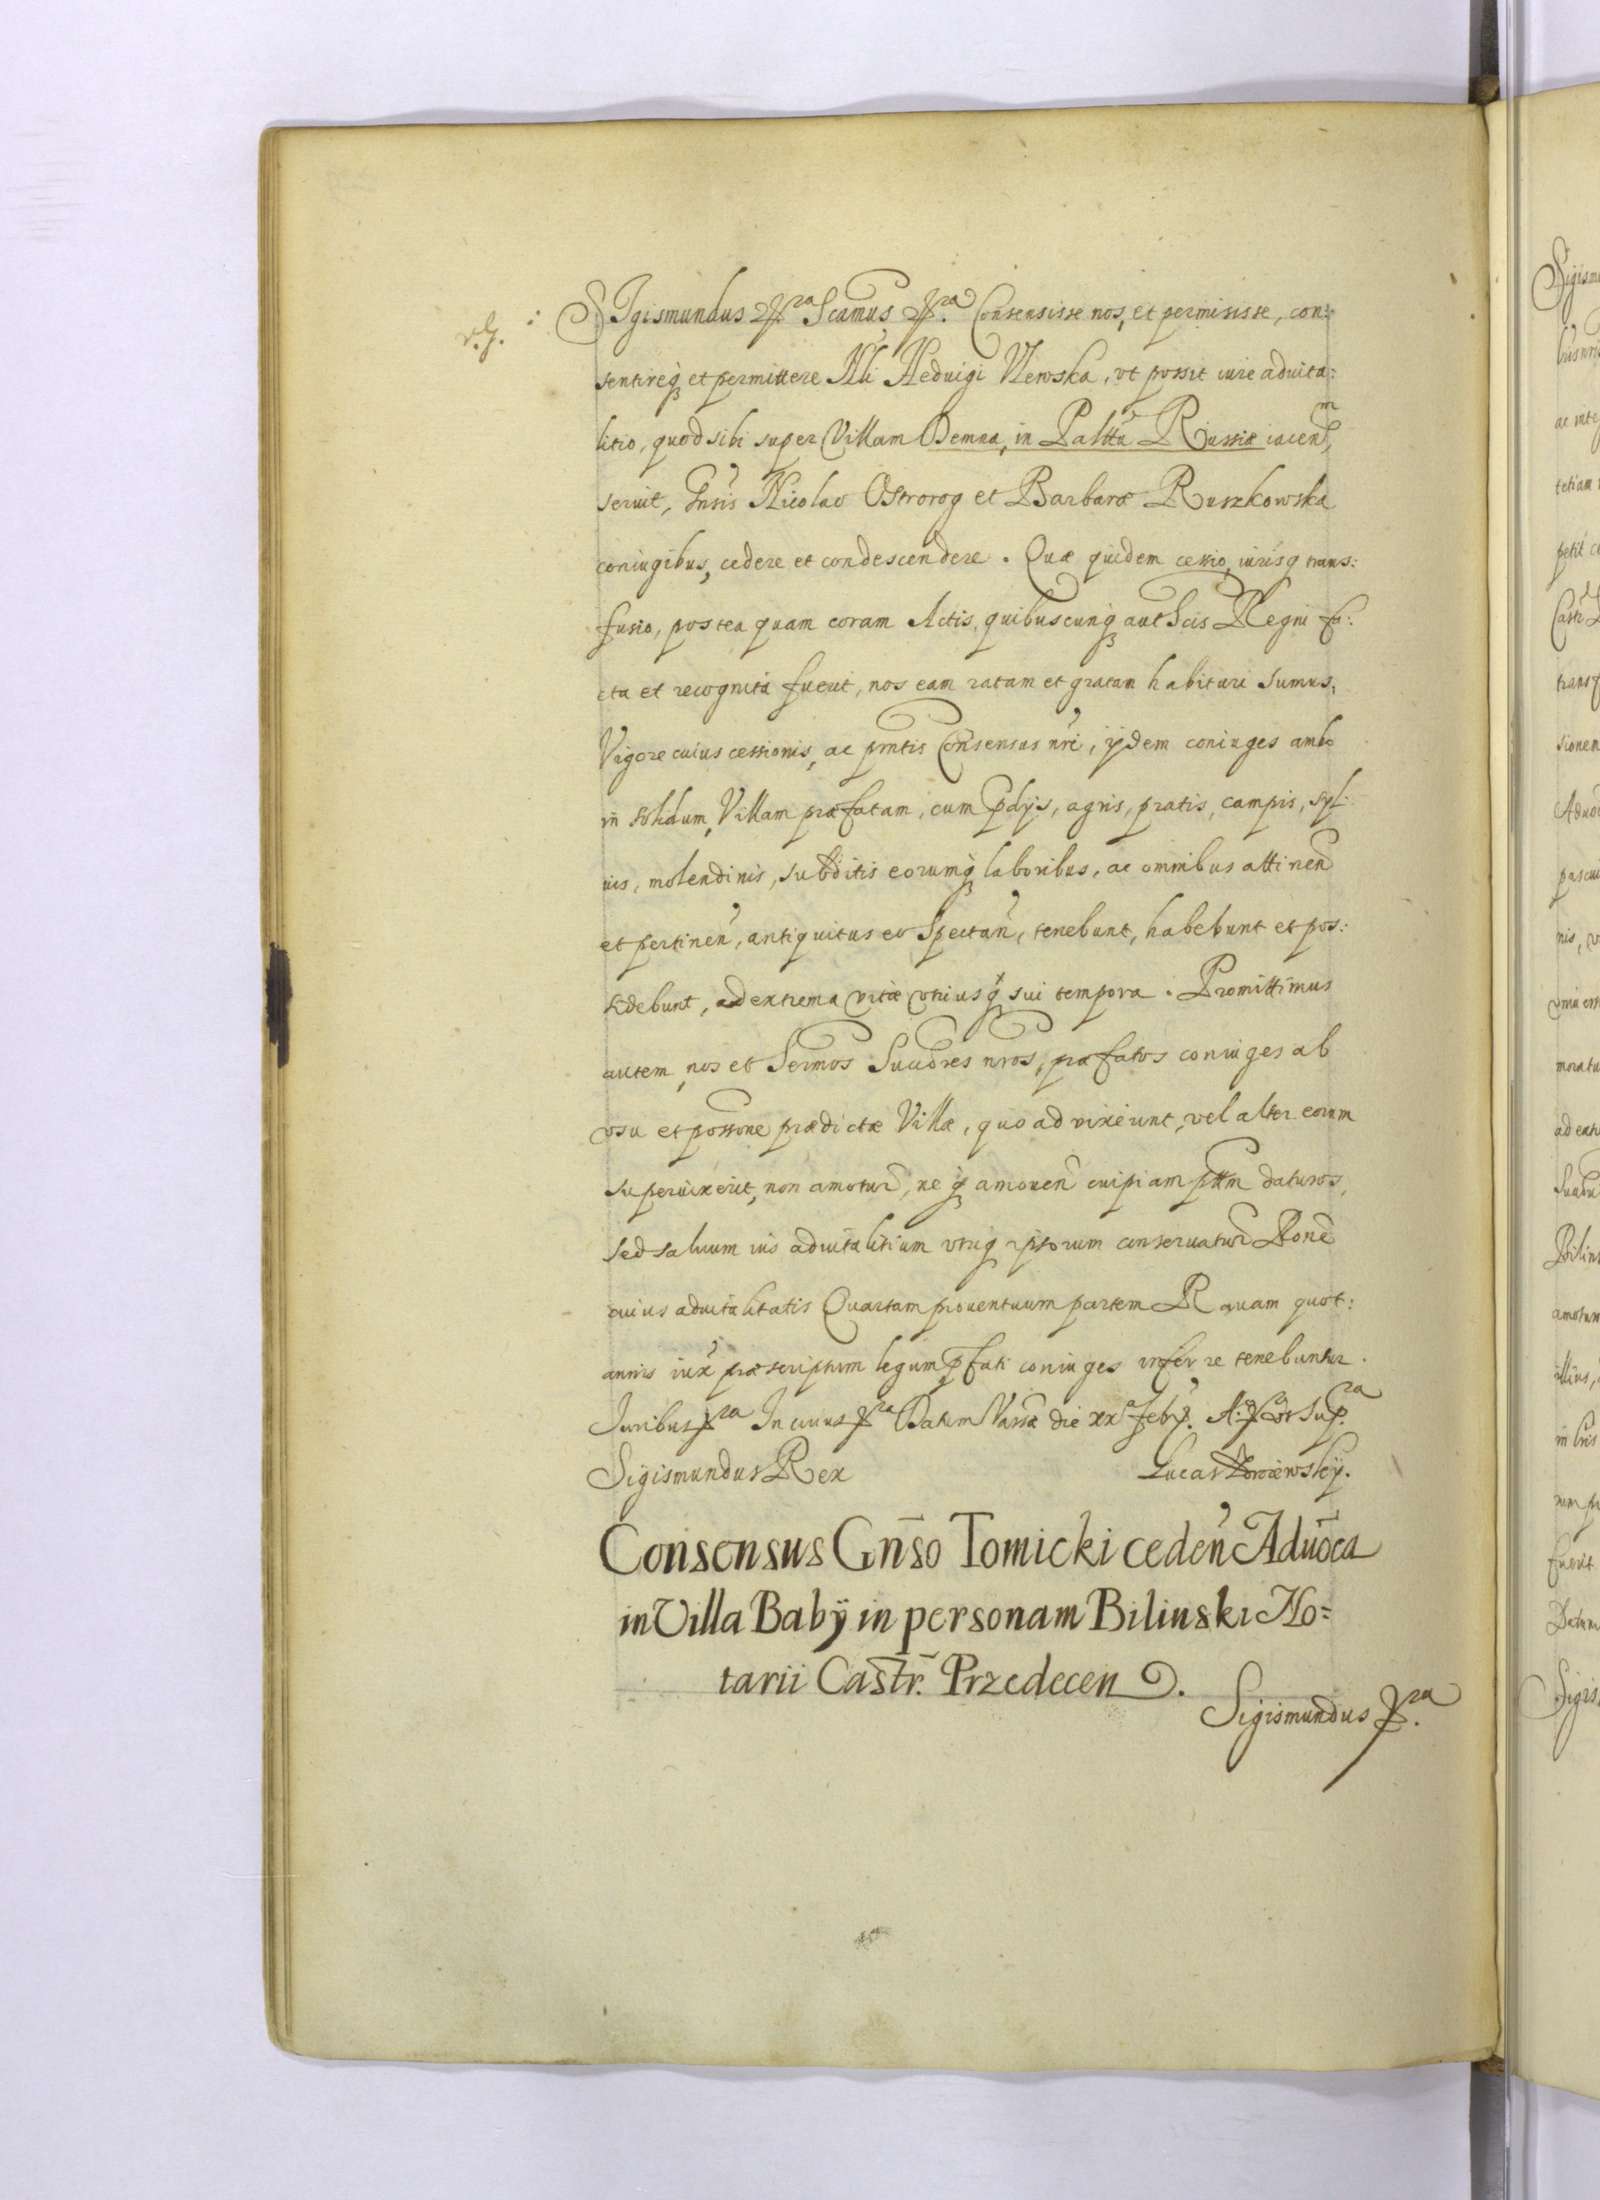 v. g. : SIgismundus etc.ra Scamus etc.ra Consensisse nos, et permisisse, con:
sentireq et permittere Nli Heduigi Vlewska, vt possit iure aduita:
litio, quod sibi super Villam Demna, in Palttu Russiæ iacentm,
seruit, Gnsis Nicolao Ostrorog et Barbaræ Ruszkowska
coniugibus, cedere et condescendere. Quæ quidem cessio, iurisq trans:
fusio, postea quam coram Actis, quibuscunq authcis Regni fa:
cta et recognita fuerit, nos eam ratam et gratam habituri sumus,
Vigore cuius cessionis, ac pntis Consensus nri, ijdem coniuges ambo
in solidum, Villam præfatam, cum pdijs, agris, pratis, campis, syl
uis, molendinis, subditis eorumq laboribus, ac omnibus attinen
et pertinen, antiquitus eo spectan, tenebunt, habebunt et pos:
sidebunt, ad extrema vitæ vtriusq sui tempora. Promittimus
autem, nos et Sermos Succores nros, præfatos coniuges ab
vsu et possone prædictæ Villæ, quo ad vixerint, vel alter eorum
superuixerit, non amotur, neq amouen cuipiam pttm daturos,
sed saluum ius aduitalitium vtriq ipsorum conseruatur Rone
cuius aduitalitatis Quartam prouentuum partem Rauam quot:
annis iux præscriptum legum pfati coniuges inferre tenebuntur.
Iuribus etc.ra In cuius etc.ra Datum Varsæ die xxa Feby. A: vt sup.ra
Sigismundus Rex Lucas
Consensus Gnso Tomicki ceden Aduoca
in Villa Babÿ in personam Bilinski No=
tarii Castr. Przedecen.
Sigismundus etc.ra